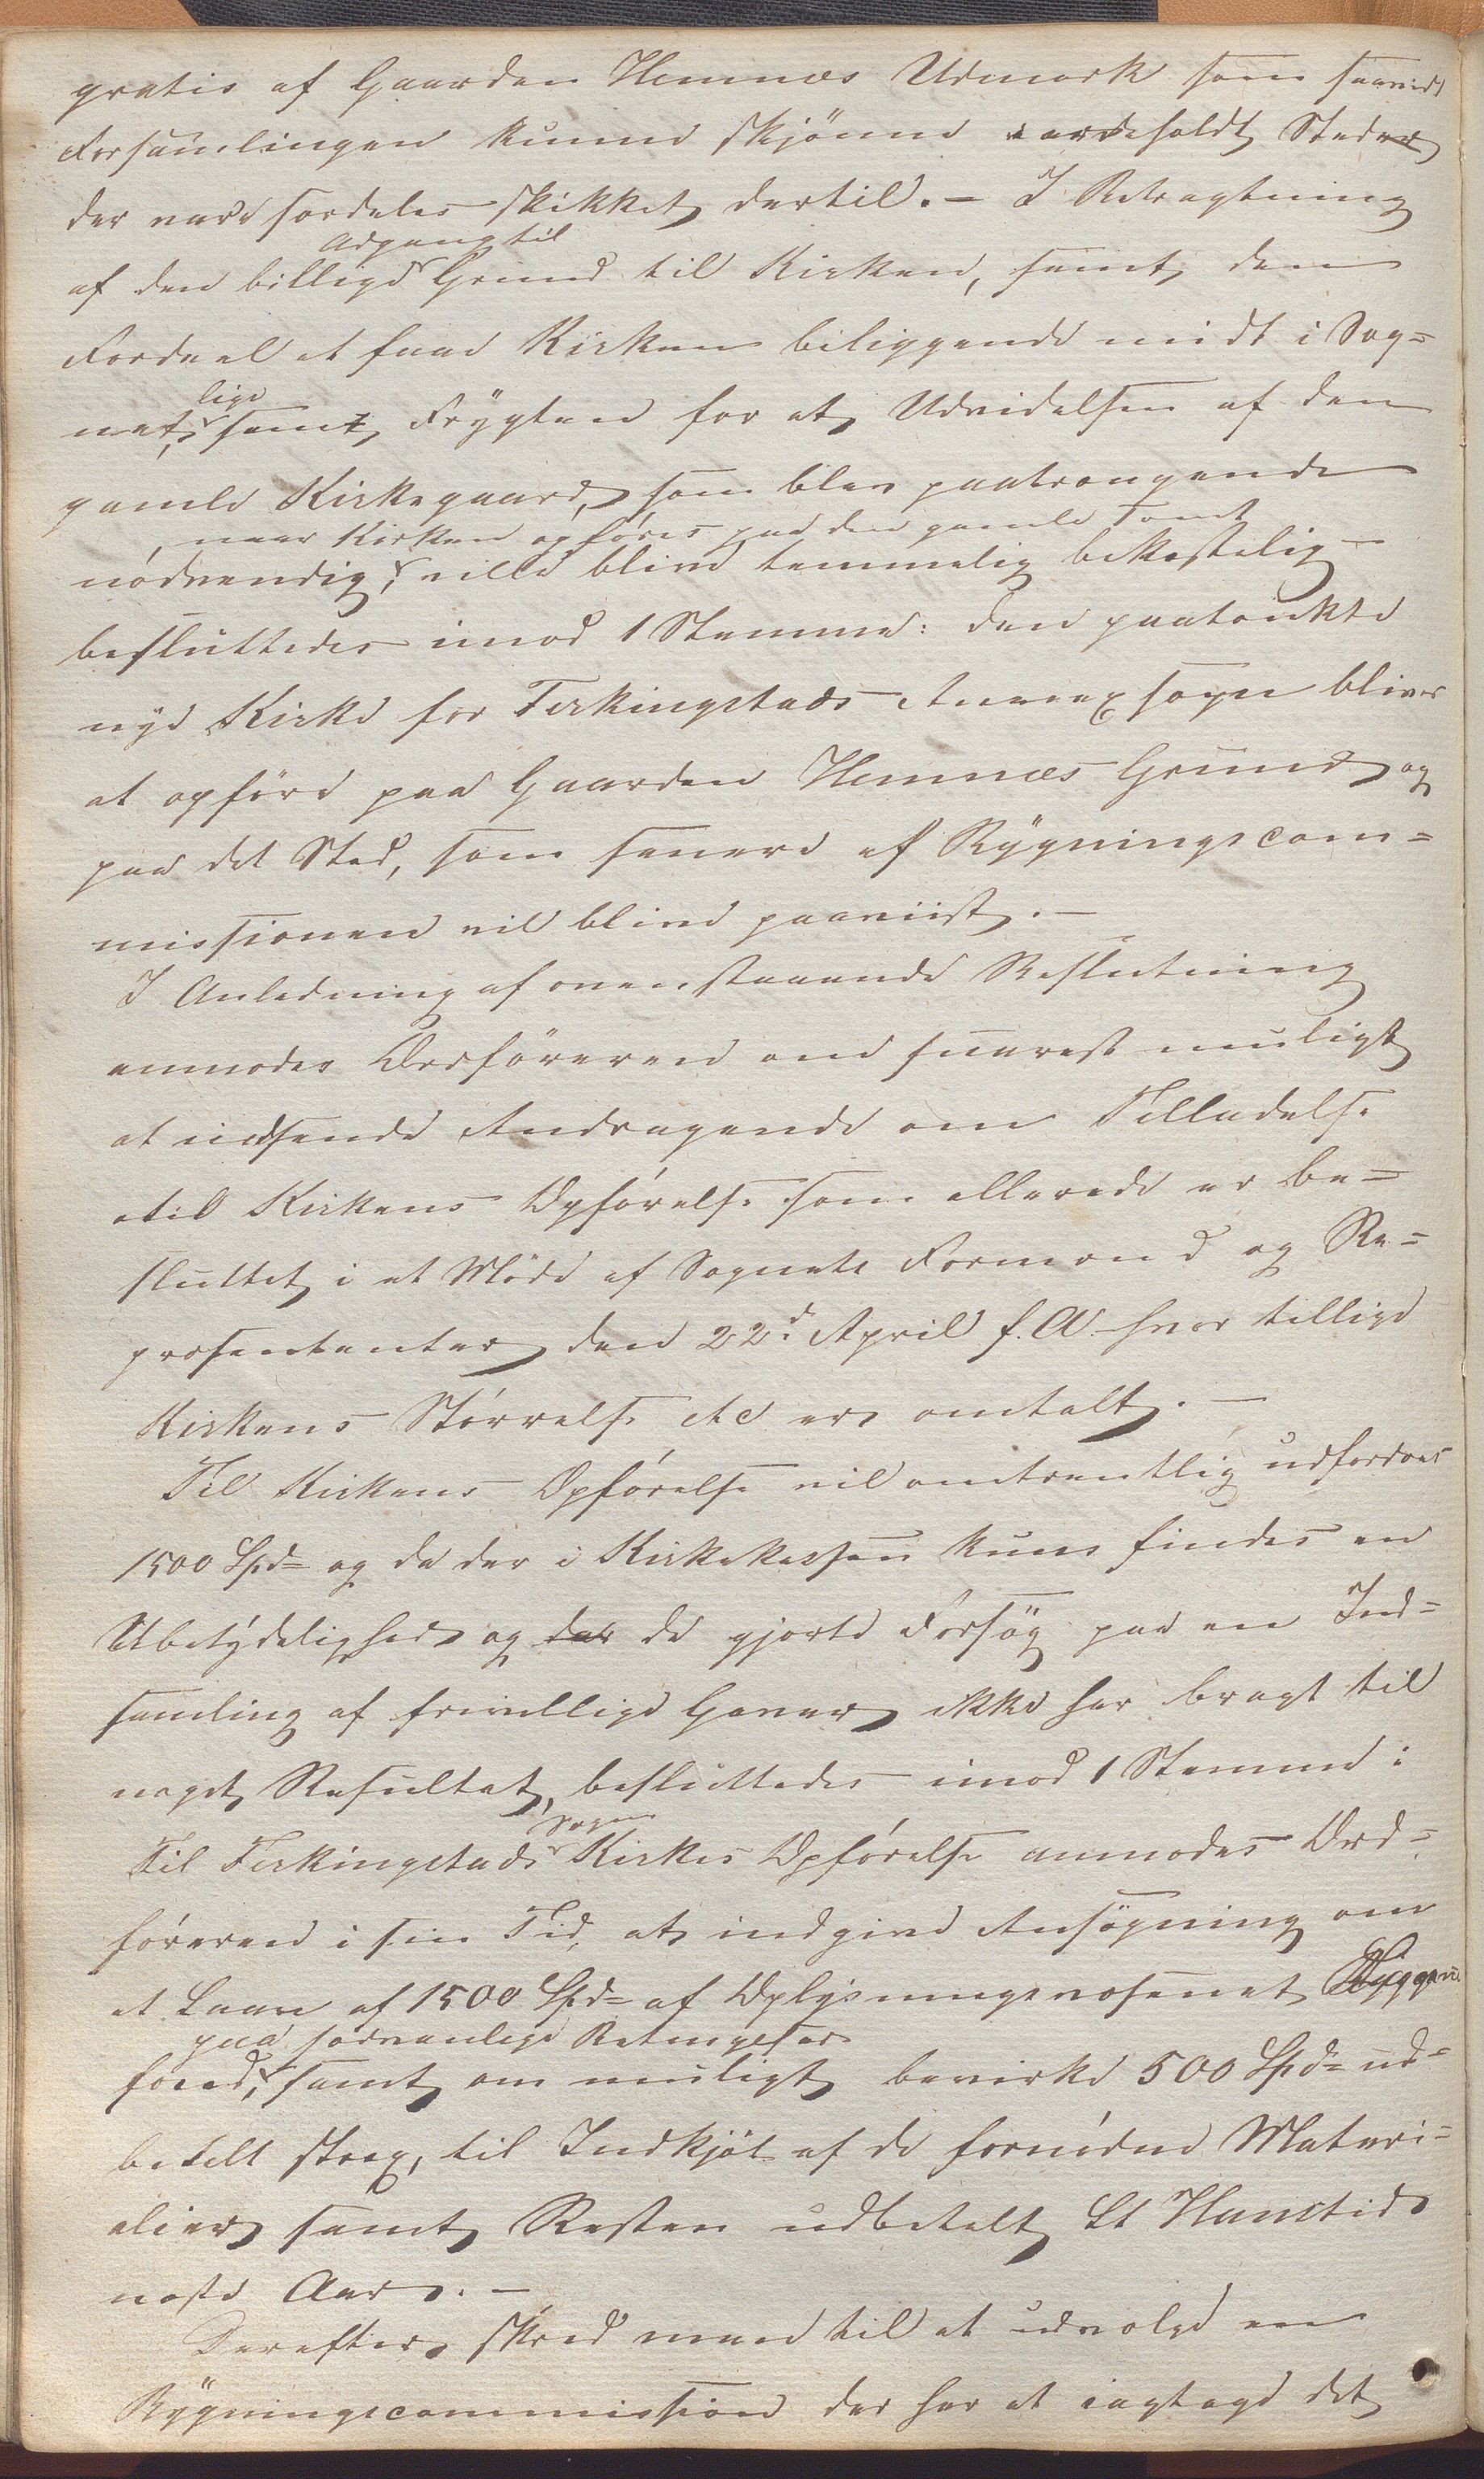 gratis af Gaarden Hemnæs Udmark som saavidt
Forsamlingen kunne skjønne indeholdt Steder
der vare særdeles skikket dertil. – I Betragtning
Adgang til
af den billige Grund til Kirken, samt den
Fordeel at faae Kirken beliggende midt i Sog=
lige
net, samt Frygten for at Udvidelsen af den
gamle Kirkegaard, som blev paatrængende
, naar Kirken opføres paa den gamle Tomt
nødvendig, ville blive temmelig bekostelig
besluttedes imod 1 Stemme: den paatænkte
nye Kirke for Ferkingstads Annexsogn bliver
at opføre paa Gaarden Hemnæs Grund og
paa det Sted, som senere af Bygningscom=
missionen vil blive paaviist. –
I Anledning af ovenstaaende Beslutning
anmodes Ordføreren om snarest muligt
at indsende Andragende om Tilladelse
til Kirkens Opførelse som allerede er be=
sluttet i et Møde af Sognets Formænd og Re=
præsentanter den 22d April f. A. hvor tillige
Kirkens Størrelse etc er omtalt. –
Til Kirkens Opførelse vil omtrentlig udfordres
1500 Spd= og da der i Kirkekassen kuns findes en
Ubetydelighed og der de gjorte Forsøg paa en Ind=
samling af frivillige Gaver ikke har bragt til
noget Resultat, besluttedes imod 1 Stemme:
Sogns
Til Ferkingstads Kirkes Opførelse anmodes Ord=
føreren i sin Tid, at indgive Ansøgning om
et Laan af 1500 Spd= af Oplysningsvæsenet
paa sædvanlige Betingelser
Fond, samt om muligt bevirke 500 Spd= ud=
betalt strax, til Indkjøb af de fornødne Materi=
alier samt Resten udbetalt St Hanstid
næste Aar. –
Derefter skred man til at udvælge en
Bygningscommission der har at iagttage det